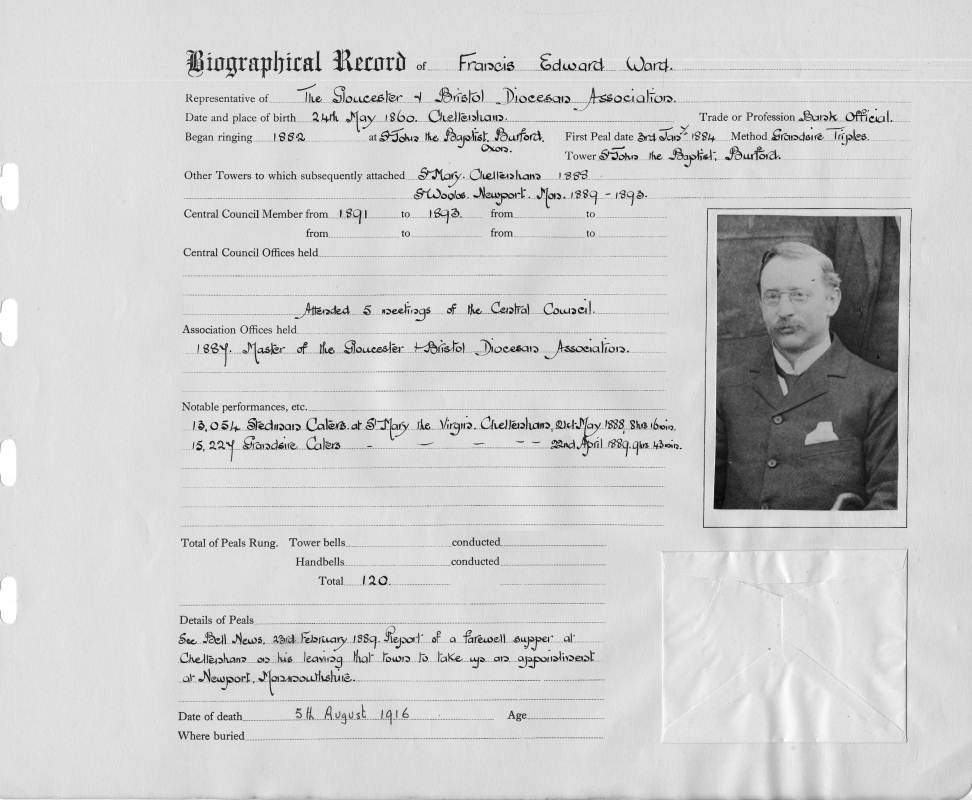 Biographical Record of Francis Edward Ward.
Representative of The Gloucester & Bristol Diocesan Association.
Date and place of birth 24th May 1860. Cheltenham. Trade or Profession Bank Official.
Began ringing 1882 at St John the Baptist, Burford, Oxon. First Peal date 3rd Jany 1884 Method Grandsire Triples.
Tower St John the Baptist, Burford.
Other Towers to which subsequently attached St Mary. Cheltenham 1883
St Woolos. Newport. Mon. 1889 - 1893.
Central Council Member from 1891 to 1893. from to
from to from to
Central Council Offices held
Attended 5 meetings of the Central Council.
Association Offices held
1887. Master of the Gloucester & Bristol Diocesan Association.
Notable performances, etc.
13,054 Stedman Caters. at St Mary the Virgin. Cheltenham, 21st May 1888, 8hrs 16min.
15,227 Grandsire Caters - - - - - 22nd April 1889. 9hrs 43min.
Total of Peals Rung. Tower bells conducted
Handbells conducted
Total 120.
Details of Peals
See Bell News, 23rd February 1889. Report of a farewell supper at
Cheltenham on his leaving that town to take up an appointment
at Newport, Monmouthshire.
Date of death 5th August 1916 Age
Where buried